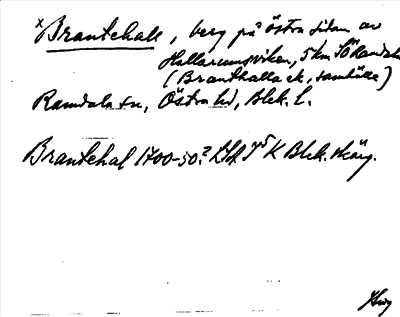 x Brantehall, berg på östra sidan av
Hallarumsviken, 5 km SÖ Ramdala
(Branthalla ek, samhälle)
Ramdala sn, Östra hd, Blek. l.
Brantehal 1700-50? LSA I 5 K Blek. skärg.